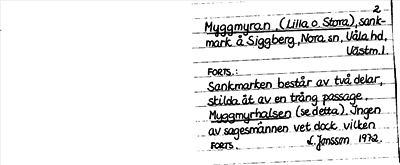 2
Myggmyran, (Lilla o. Stora), sank-
mark å Siggberg, Nora sn, Våla hd,
Västm. l.
FORTS.:
Sankmarken består av två delar,
skilda åt av en trång passage,
Myggmyrhalsen (se detta). Ingen
av sagesmännen vet dock vilken
FORTS. L. Jonsson 1972.